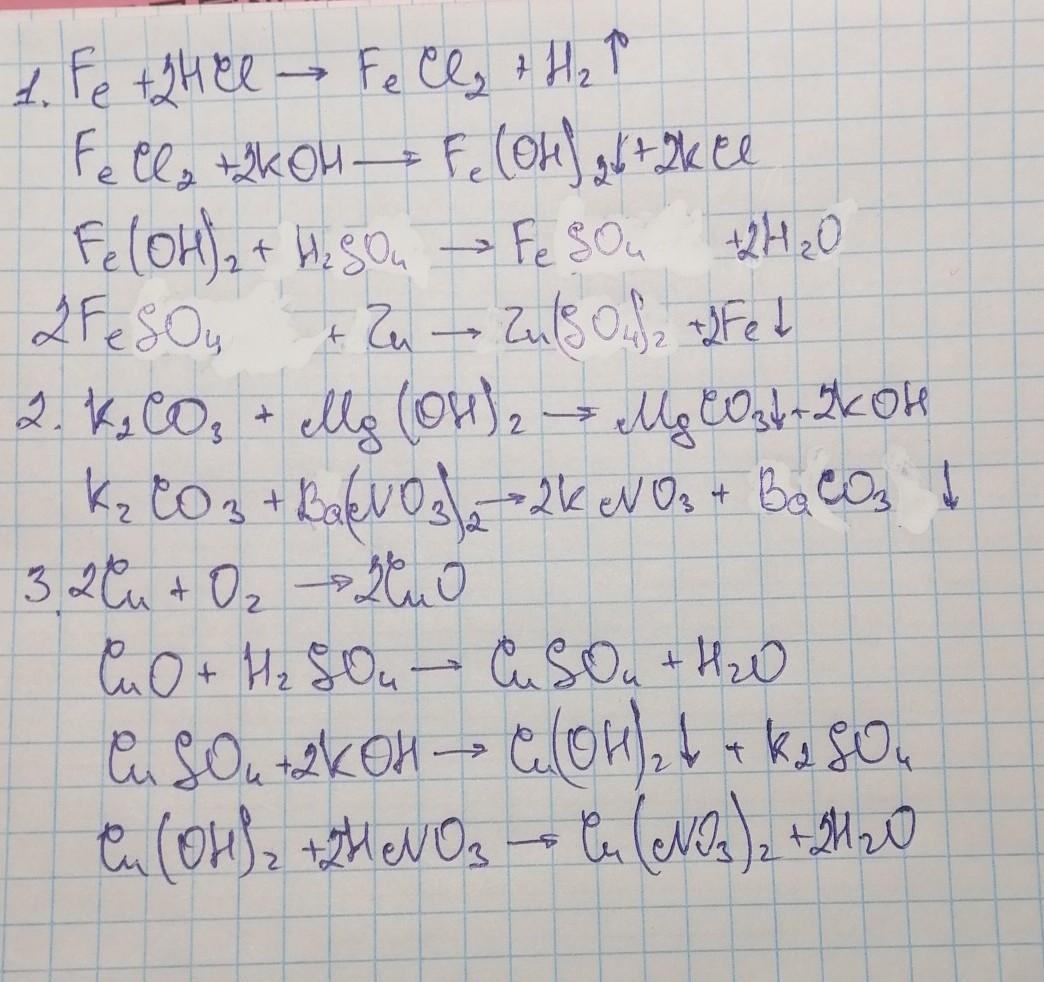 1. Fe + 2HCl → FeCl₂ + H₂↑
FeCl₂ + 2KOH → Fe(OH)₂↓ + 2KCl
Fe(OH)₂ + H₂SO₄ → FeSO₄ + 2H₂O
2FeSO₄ + Zn → Zn(SO₄)₂ + 2Fe↓
2. K₂CO₃ + Mg(OH)₂ → MgCO₃↓ + 2KOH
K₂CO₃ + Ba(NO₃)₂ → 2KNO₃ + BaCO₃ ↓
3. 2Cu + O₂ → 2CuO
CuO + H₂SO₄ → CuSO₄ + H₂O
CuSO₄ + 2KOH → Cu(OH)₂↓ + K₂SO₄
Cu(OH)₂ + 2HNO₃ → Cu(NO₃)₂ + 2H₂O